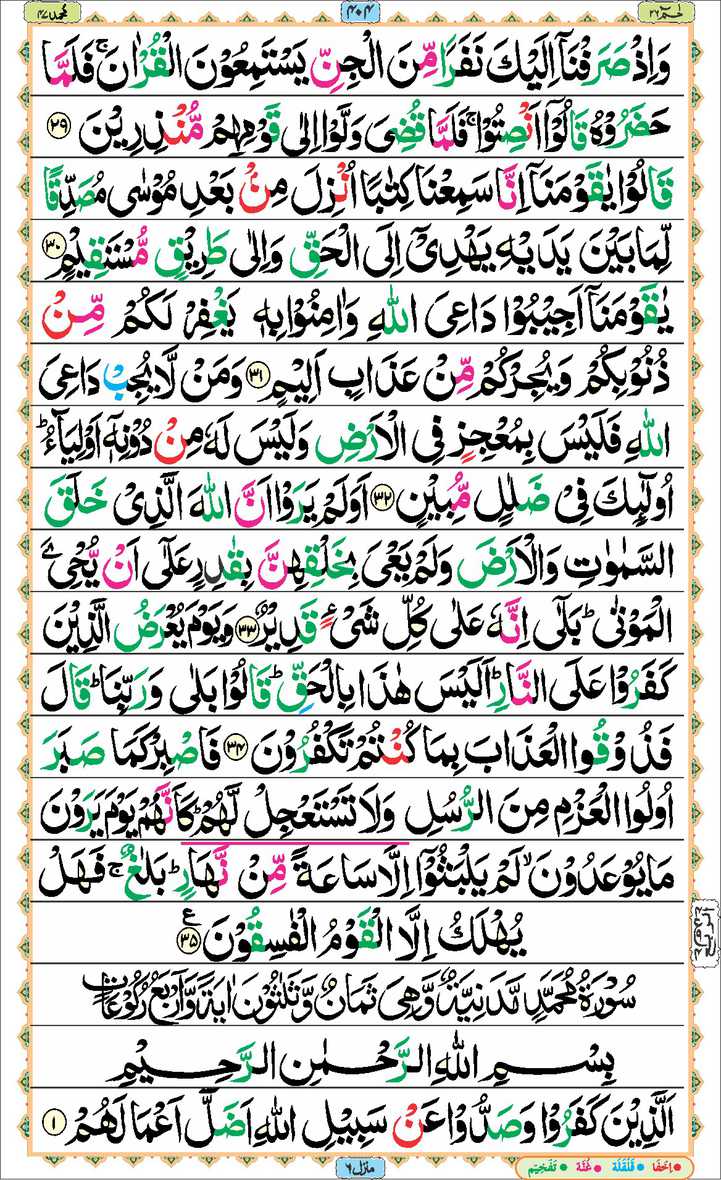 محمد ٤٧
٤٠٤
حٰمٓ ٢٦
وَاِذْ صَرَفْنَاۤ اِلَیْكَ نَفَرًا مِّنَ الْجِنِّ یَسْتَمِعُوْنَ الْقُرْاٰنَ ۚ فَلَمَّا
حَضَرُوْهُ قَالُوْۤا اَنْصِتُوْا ۚ فَلَمَّا قُضِیَ وَلَّوْا اِلٰی قَوْمِهِمْ مُّنْذِرِیْنَ ﴿۲۹﴾
قَالُوْا یٰقَوْمَنَاۤ اِنَّا سَمِعْنَا كِتٰبًا اُنْزِلَ مِنْۢ بَعْدِ مُوْسٰی مُصَدِّقًا
لِّمَا بَیْنَ یَدَیْهِ یَهْدِیْۤ اِلَی الْحَقِّ وَاِلٰی طَرِیْقٍ مُّسْتَقِیْمٍ ﴿۳۰﴾
یٰقَوْمَنَاۤ اَجِیْبُوْا دَاعِیَ اللّٰهِ وَاٰمِنُوْا بِهٖ یَغْفِرْ لَكُمْ مِّنْ
ذُنُوْبِكُمْ وَیُجِرْكُمْ مِّنْ عَذَابٍ اَلِیْمٍ ﴿۳۱﴾ وَمَنْ لَّا یُجِبْ دَاعِیَ
اللّٰهِ فَلَیْسَ بِمُعْجِزٍ فِی الْاَرْضِ وَلَیْسَ لَهٗ مِنْ دُوْنِهٖۤ اَوْلِیَآءُ ؕ
اُولٰٓئِكَ فِیْ ضَلٰلٍ مُّبِیْنٍ ﴿۳۲﴾ اَوَلَمْ یَرَوْا اَنَّ اللّٰهَ الَّذِیْ خَلَقَ
السَّمٰوٰتِ وَالْاَرْضَ وَلَمْ یَعْیَ بِخَلْقِهِنَّ بِقٰدِرٍ عَلٰۤی اَنْ یُّحْیَِۧ
الْمَوْتٰی ؕ بَلٰۤی اِنَّهٗ عَلٰی كُلِّ شَیْءٍ قَدِیْرٌ ﴿۳۳﴾ وَیَوْمَ یُعْرَضُ الَّذِیْنَ
كَفَرُوْا عَلَی النَّارِ ؕ اَلَیْسَ هٰذَا بِالْحَقِّ ؕ قَالُوْا بَلٰی وَرَبِّنَا ؕ قَالَ
فَذُوْقُوا الْعَذَابَ بِمَا كُنْتُمْ تَكْفُرُوْنَ ﴿۳۴﴾ فَاصْبِرْ كَمَا صَبَرَ
اُولُوا الْعَزْمِ مِنَ الرُّسُلِ وَلَا تَسْتَعْجِلْ لَّهُمْ ؕ كَاَنَّهُمْ یَوْمَ یَرَوْنَ
مَا یُوْعَدُوْنَ ۙ لَمْ یَلْبَثُوْۤا اِلَّا سَاعَةً مِّنْ نَّهَارٍ ؕ بَلٰغٌ ۚ فَهَلْ
یُهْلَكُ اِلَّا الْقَوْمُ الْفٰسِقُوْنَ ﴿۳۵﴾ ع
سُوْرَةُ مُحَمَّدٍ مَّدَنِیَّةٌ وَّهِیَ ثَمَانٌ وَّثَلٰثُوْنَ اٰیَةً وَّاَرْبَعُ رُكُوْعَاتٍ
بِسْمِ اللّٰهِ الرَّحْمٰنِ الرَّحِیْمِ
اَلَّذِیْنَ كَفَرُوْا وَصَدُّوْا عَنْ سَبِیْلِ اللّٰهِ اَضَلَّ اَعْمَالَهُمْ ﴿۱﴾
منزل ۶
اِخفا • قَلقَلَة • غُنَّة • تَفْخِیْم